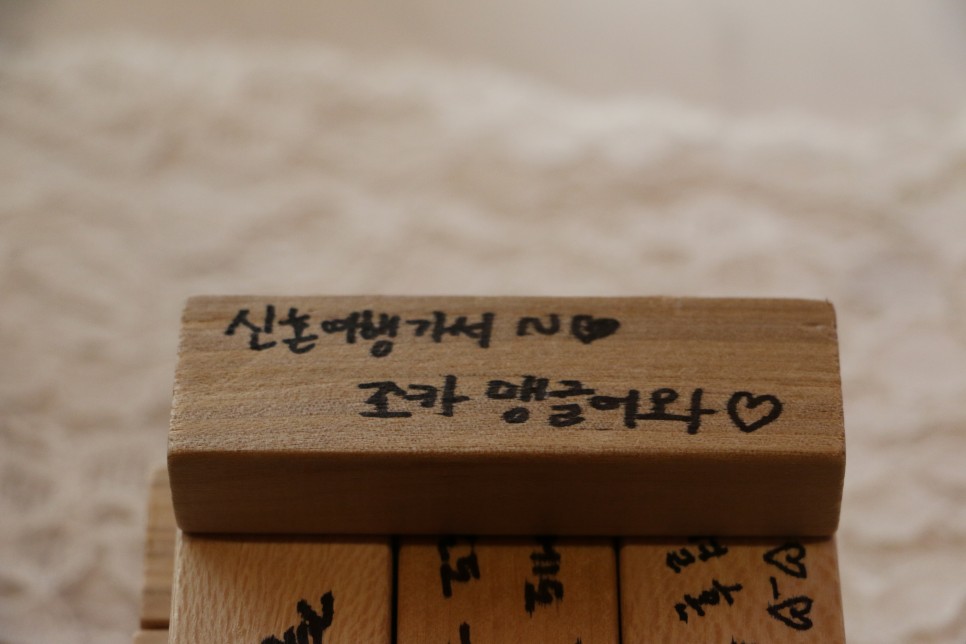 신혼여행가서 ~♥
조카 맹글어와♡